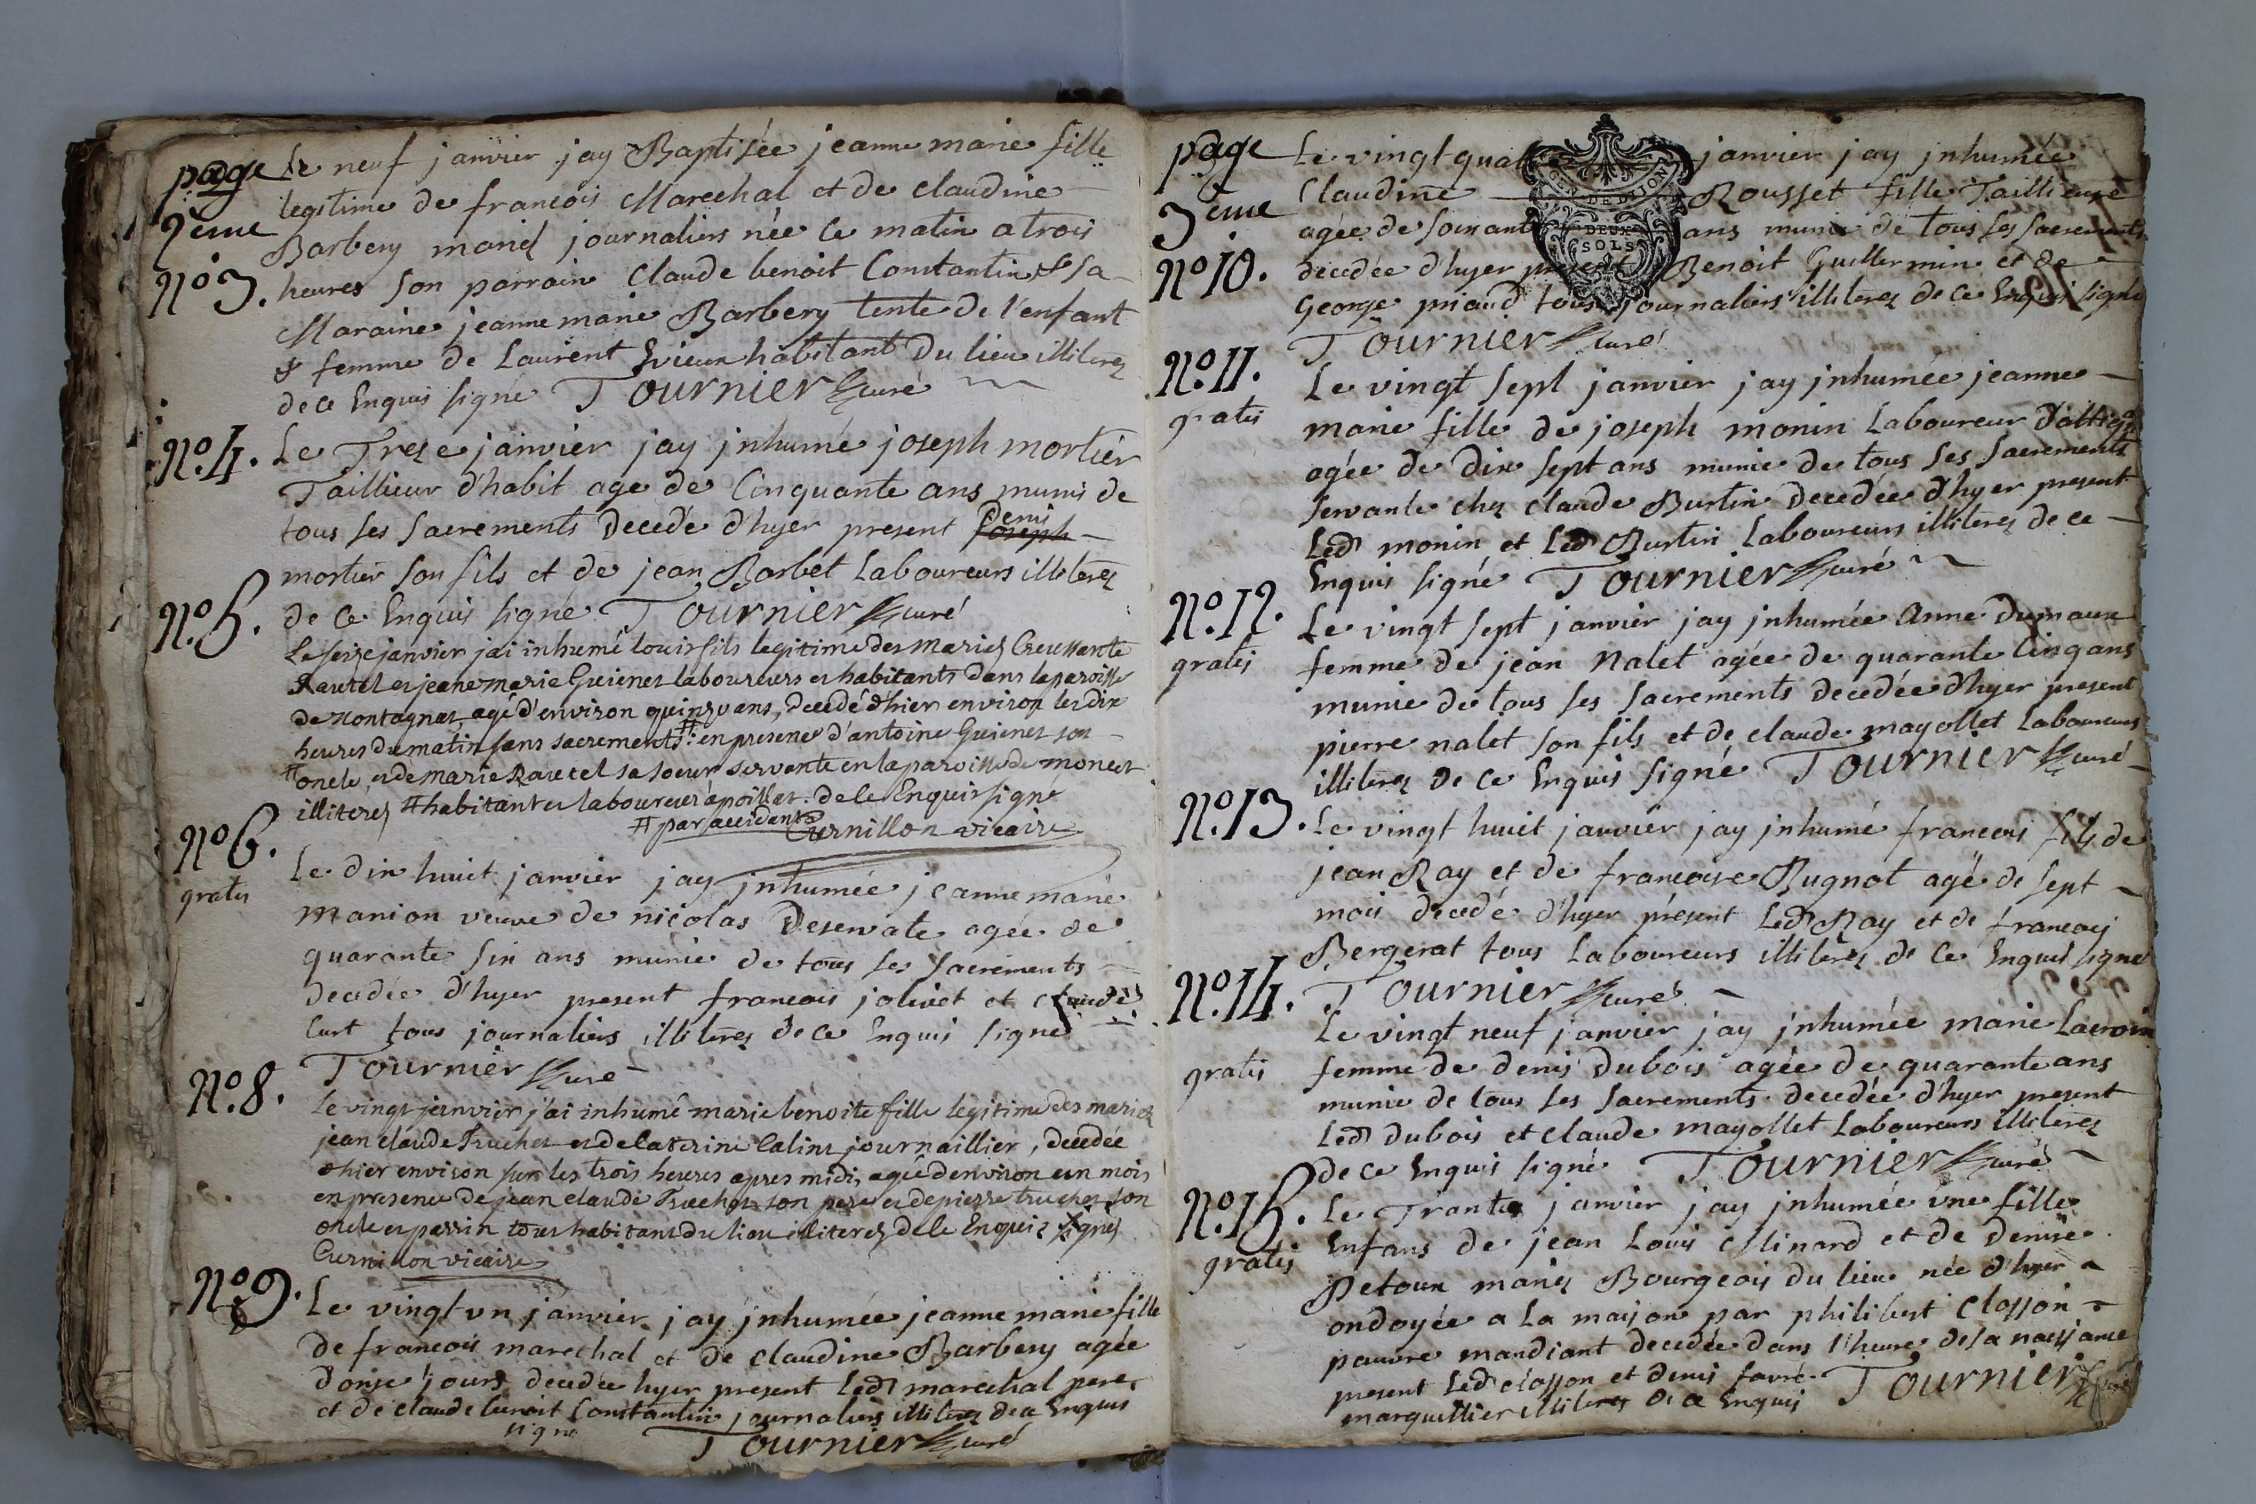 page
2eme
No 3.
Le neuf janvier jay Baptisée jeanne marie fille
legitime de francois Marechal et de claudine
Barbery mariés journaliers née ce matin a trois
heures son parrain claude benoit Constantin & sa
Maraine jeanne marie Barbery tente de l'enfant
& femme de Laurent habitant du lieu illiterez
de ce Enquis signé Tournier curé
No. 4.
Le Treze janvier jay jnhumé joseph mortier
Taillieur d'habit age de Cinquante ans muni de
tous ses sacrements decede d'hyer present Denis
mortier son fils et de jean Barbet Laboureurs illiterez
de ce Enquis signé Tournier curé
No. 5.
Le seize janvier jai inhumé louis fils legitime des mariez
Rautel et jeane marie Guienet laboureurs et habitants dans la paroisse
de Montagnat, agé d'environ quinze ans, decedé d'hier environ les dix
heures du matin sans sacrements # en presence d'antoine Guienet son
oncle, et de marie Rautel sa soeur servante en la paroisse de
illiterez # habitant et laboureur a poissat. de le Enquis signé
# par accidant Curnillon vicaire
No 6.
gratis
Le dix huit janvier jay jnhumée jeanne marie
manion veuve de nicolas agée de
quarante six ans munie de tous ses sacrements
decedée d'hyer present francois jolivet et claude
Curt tous journaliers illiterez de ce Enquis signé
Tournier curé
No. 8.
Le vingt janvier j'ai inhumé marie benoite fille legitime des mariez
jean claude Truchet et de Caterine Calins journaillier, decedée
d'hier environ sur les trois heures apres midi, agée d'environ un mois
en presence de jean claude Truchet son pere et de pierre truchet son
oncle et parrin tous habitans du lieu illiterez de le Enquis signé
Curnillon vicaire
No 9.
Le vingt vn janvier jay jnhumée jeanne marie fille
de francois marechal et de claudine Barbery agée
d'onze jours decedée hyer present Led marechal pere
et de claude benoit Constantin journaliers illiterez de ce Enquis
signé Tournier curé
page
3eme
No 10.
GEN DE DIJON
DEUX
SOLS
Le vingt quatre janvier jay jnhumée
Claudine Rousset fille Taillieuse
agée de soixante ans munie de tous ses sacrements
decedée d'hyer present Benoit Guillermin et de
George priaud tous journaliers illiterez de ce Enquis signé
Tournier curé
No. 11.
gratis
Le vingt sept janvier jay jnhumée jeanne
marie fille de joseph monin Laboureur
agée de dix sept ans munie de tous ses sacrements
servante chez claude Burtin decedée d'hyer present
Led monin et Led Burtin Laboureurs illiterez de ce
Enquis signé Tournier curé
No. 12.
gratis
Le vingt sept janvier jay jnhumée Anne Dumaux
femme de jean Nalet agée de quarante Cinq ans
munie de tous ses sacrements decedée d'hyer present
pierre nalet son fils et de claude mayollet Laboureurs
illiterez de ce Enquis signé Tournier curé
No. 13.
Le vingt huit janvier jay jnhumé francois fils de
jean Ray et de francoise Rugnot agé de sept
mois decedé d'hyer present Led Ray et de francois
Bergerat tous Laboureurs illiterez de ce Enquis signé
Tournier curé
No. 14.
gratis
Le vingt neuf janvier jay jnhumée marie Lacroix
femme de denis Dubois agée de quarante ans
munie de tous ses sacrements decedée d'hyer present
Led dubois et claude mayollet Laboureurs illiterez
de ce Enquis signé Tournier curé
No. 15.
gratis
Le Trante janvier jay jnhumée vne fille
Enfans de jean Louis Minard et de Denise
Detoux mariez Bourgeois du lieu née d'hyer
ondoyée a La maison par philibert Closson
pauvre mandiant decedée dans l'heure de sa naissance
present Led closson et denis favre
marguillier illiterez de ce Enquis Tournier curé